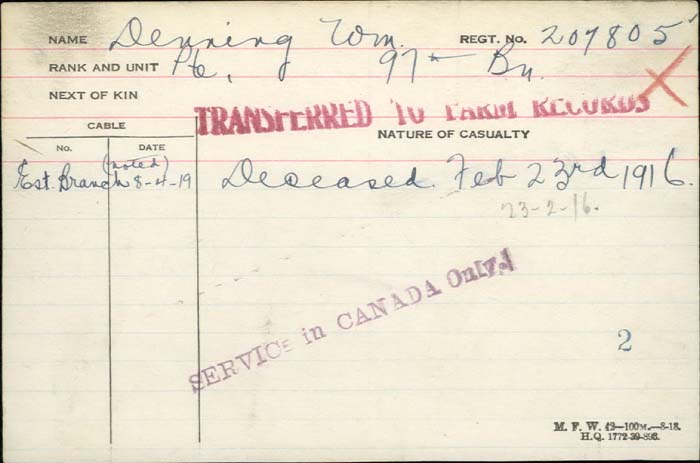 NAME Denning Wm. REGT. NO. 207805
RANK AND UNIT Pte, 97th Bn.
NEXT OF KIN
TRANSFERRED TO FARM RECORDS
CABLE
NATURE OF CASUALTY
No. DATE
(noted)
Est. Branch 8-4-19 Deceased. Feb 23rd 1916.
23-2-16.
SERVICE in CANADA Only.
2
M. F. W. 42—100M.—8-18.
H.Q. 1772-39-893.